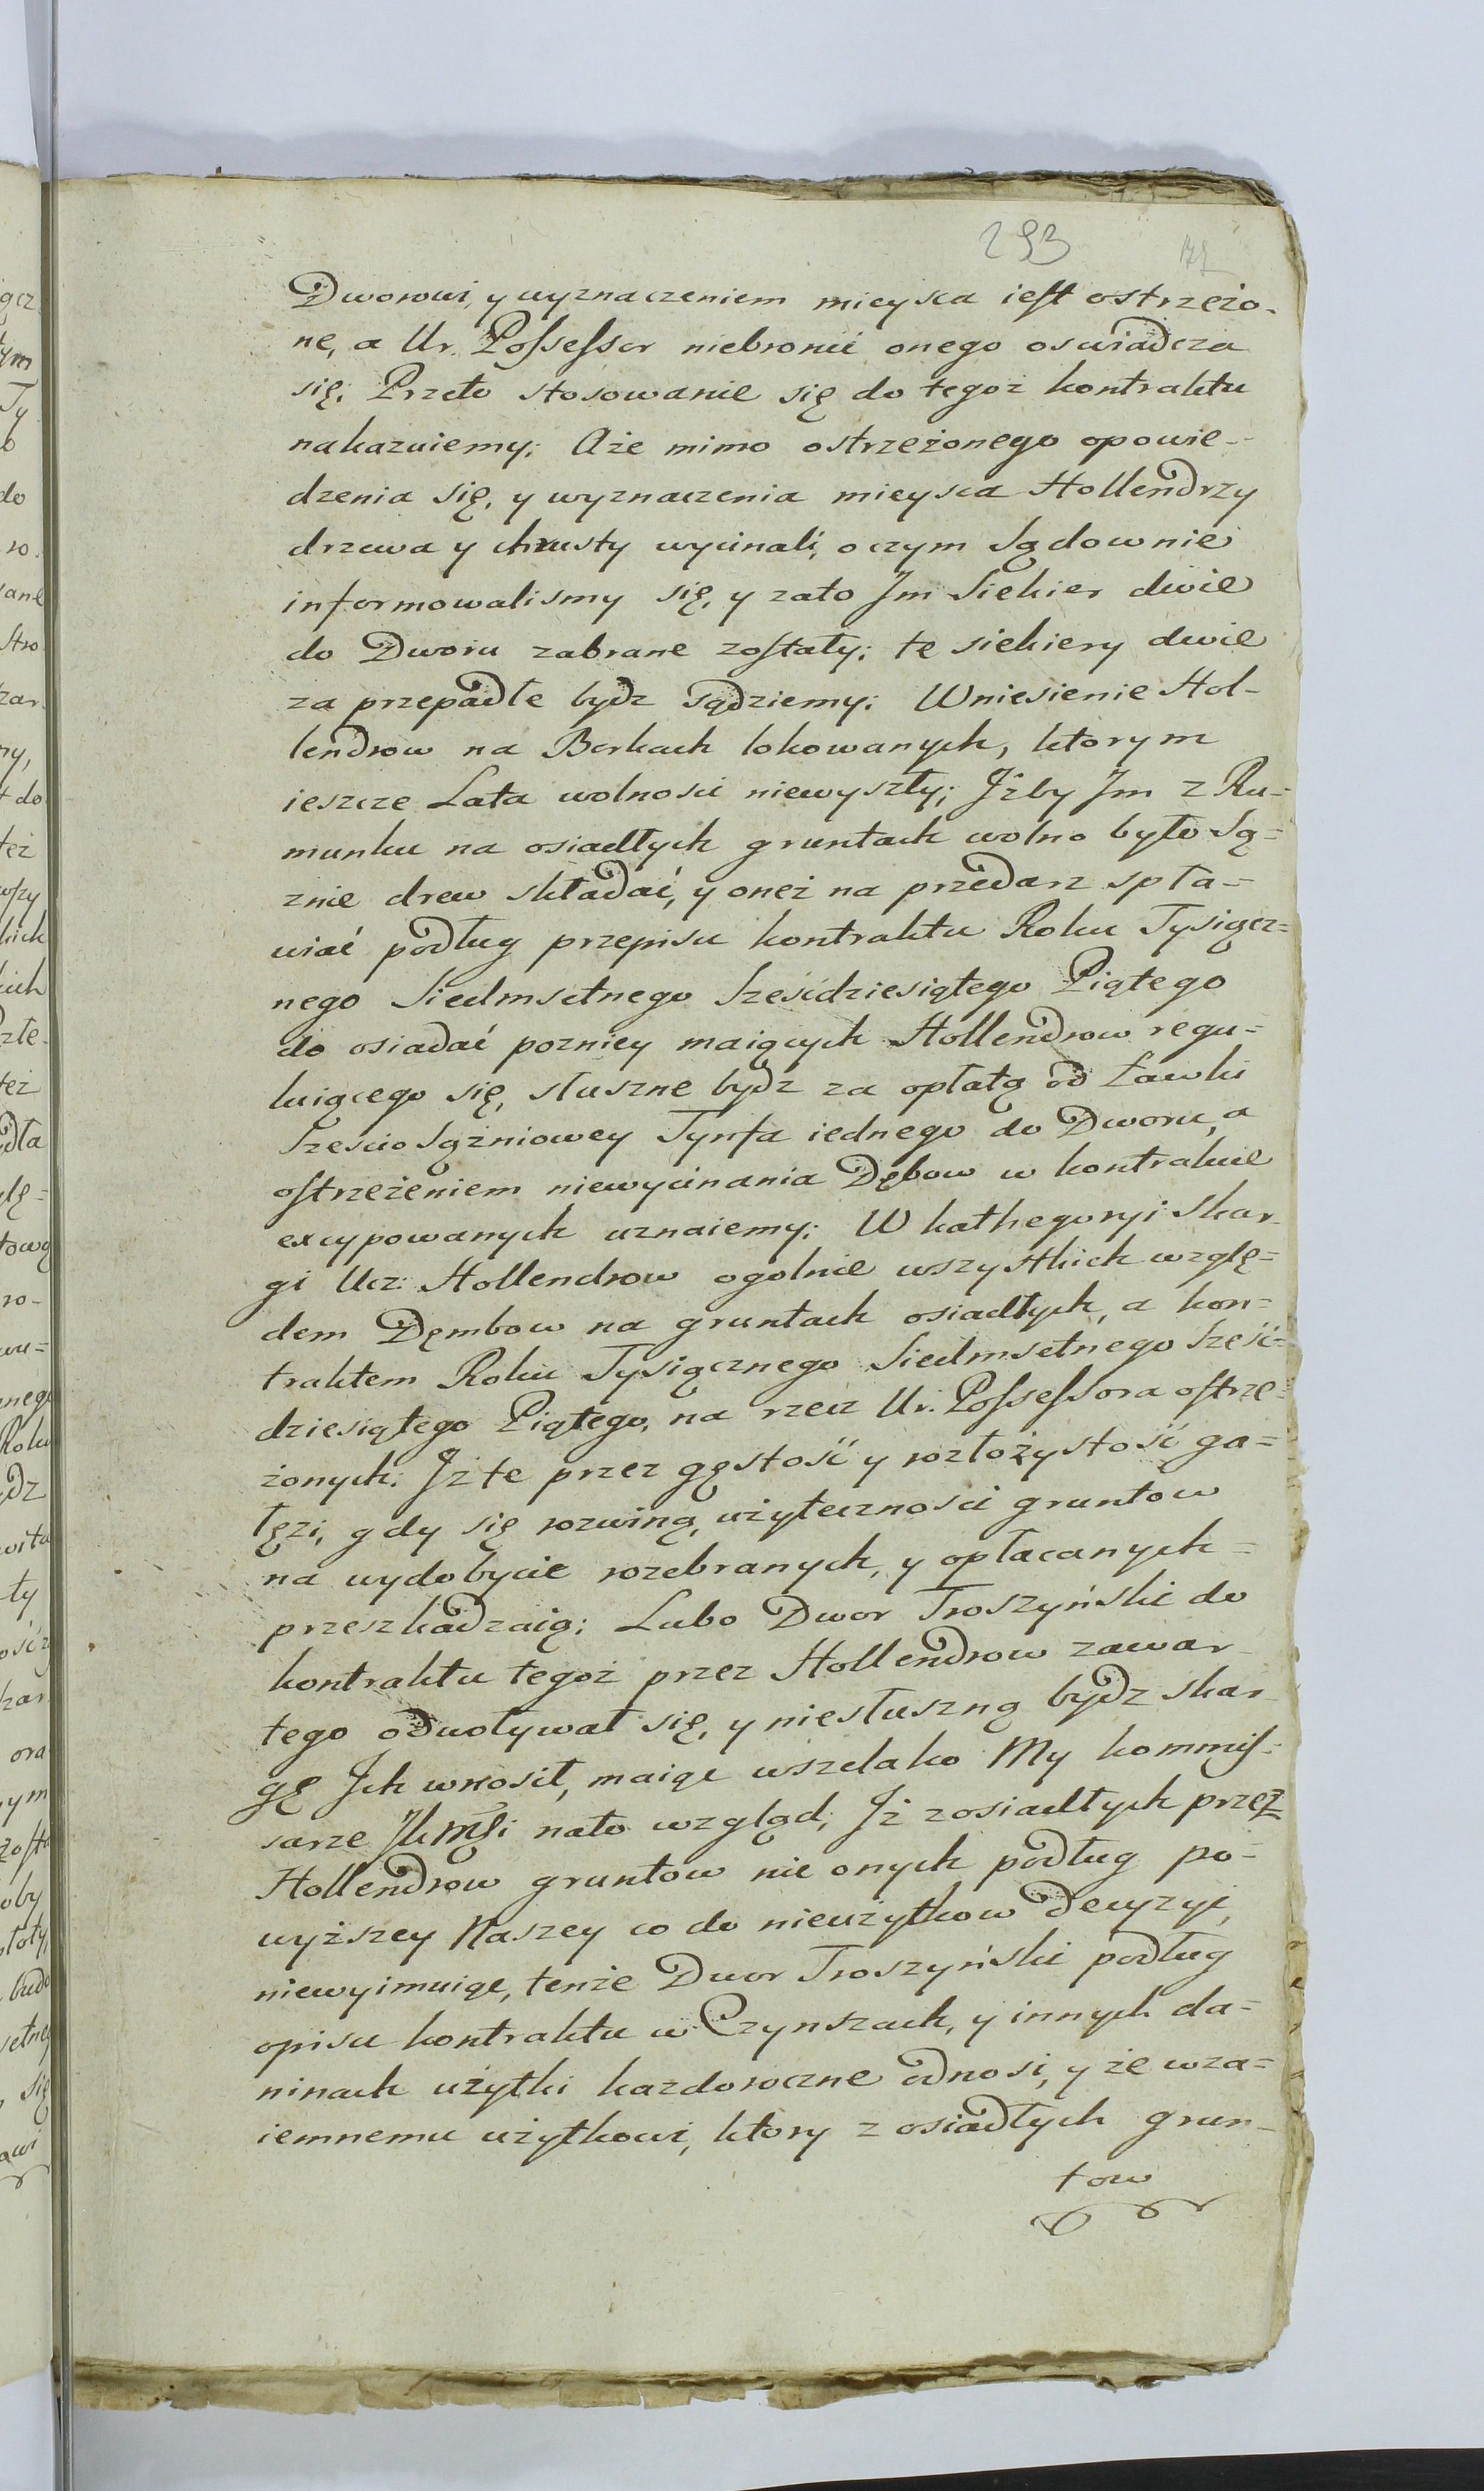 293
Dworowi, y wyznaczeniem mieysca iest ostrzeżo-
ne, a Ur. Possessor niebronić onego oswiadcza
się; Przeto stosowanie się do tegoż kontraktu
nakazuiemy; Aże mimo ostrzeżonego opowie-
dzenia się, y wyznaczenia mieysca Hollendrzy
drzewa y chrusty wycinali, oczym Sądownie
informowalismy się, y zato Jm Siekier dwie
do Dworu zabrane zostały; te siekiery dwie
za przepadłe bydz sądziemy; Wniesienie Hol-
lendrow na Borkach lokowanych, ktorym
ieszcze Lata wolnosci niewyszły; Jżby Jm z Ru-
munku na osiadłych gruntach wolno było Są=
znie drew składać, y oneż na przedarz spła=
wiać podług przepisu kontraktu Roku Tysiącz=
nego Siedmsetnego Sześcdziesiątego Piątego
do osiadać pozniey maiących Hollendrow regu=
luiącego się, słuszne bydz za opłatą od Ławki
Szescio Sążniowey Tynfa iednego do Dworu, a
ostrzeżeniem niewycinania Dębow w kontrakcie
excypowanych uznaiemy; W kathegoryi Skar-
gi Ucz: Hollendrow ogolnie wszystkich wzglę=
dem Dęmbow na gruntach osiadłych, a kon=
traktem Roku Tysiącznego Siedmsetnego Sześć=
dziesiątego Piątego, na rzecz Ur. Possessora ostrze=
żonych; Jż te przez gęstość y rozłożystość ga=
łęzi, gdy się rozwiną, użyteczności gruntow
na wydobycie rozebranych, y opłacanych =
przeszkadzaią; Lubo Dwor Troszyński do
kontraktu tegoż przez Hollendrow zawar-
tego odwoływał się, y niesłuszną bydz skar-
gę Jch wnosił, maiąc wszelako My kommis=
sarze JKMSi nato wzgląd; Jż z osiadłych przez
Hollendrow gruntow nic onych podług po=
wyższey Naszey co do nieużytkow Decyzyi,
niewyimuiąc, tenże Dwor Troszyński podług
opisu kontraktu w Czynszach, y innych da=
ninach użytki kazdoroczne odnosi, y że wza=
iemnemu użytkowi, ktory z osiadłych grun-
tow